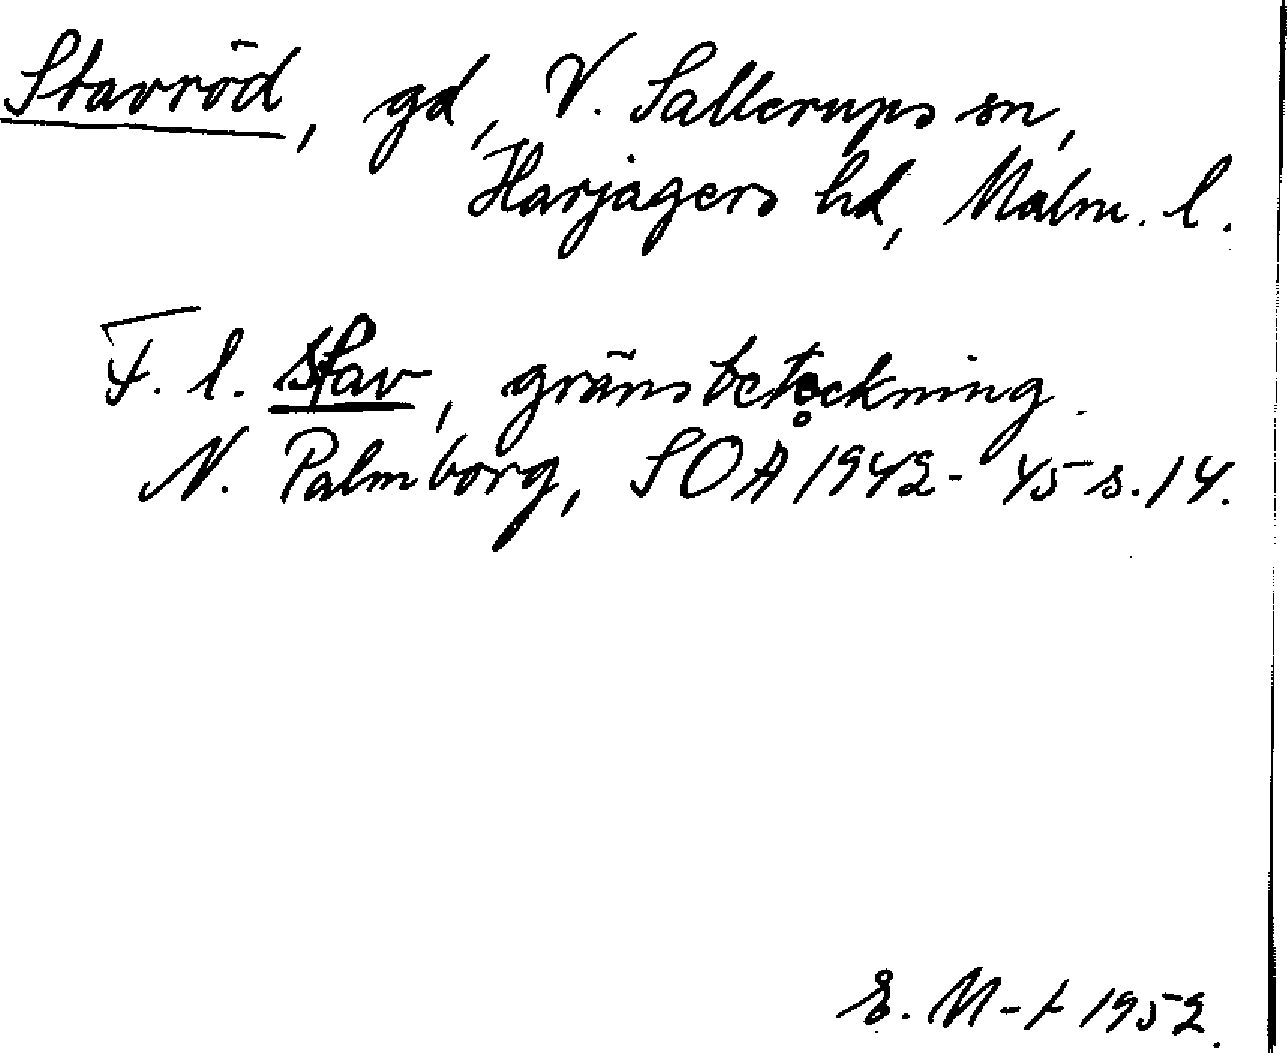 Stavröd, gd, V. Sallerups sn,
Harjagers hd, Malm. l.
F. l. stav, gränsbeteckning.
N. Palmborg, SOÅ 1942-45 s. 14.
E. M-t 1952.